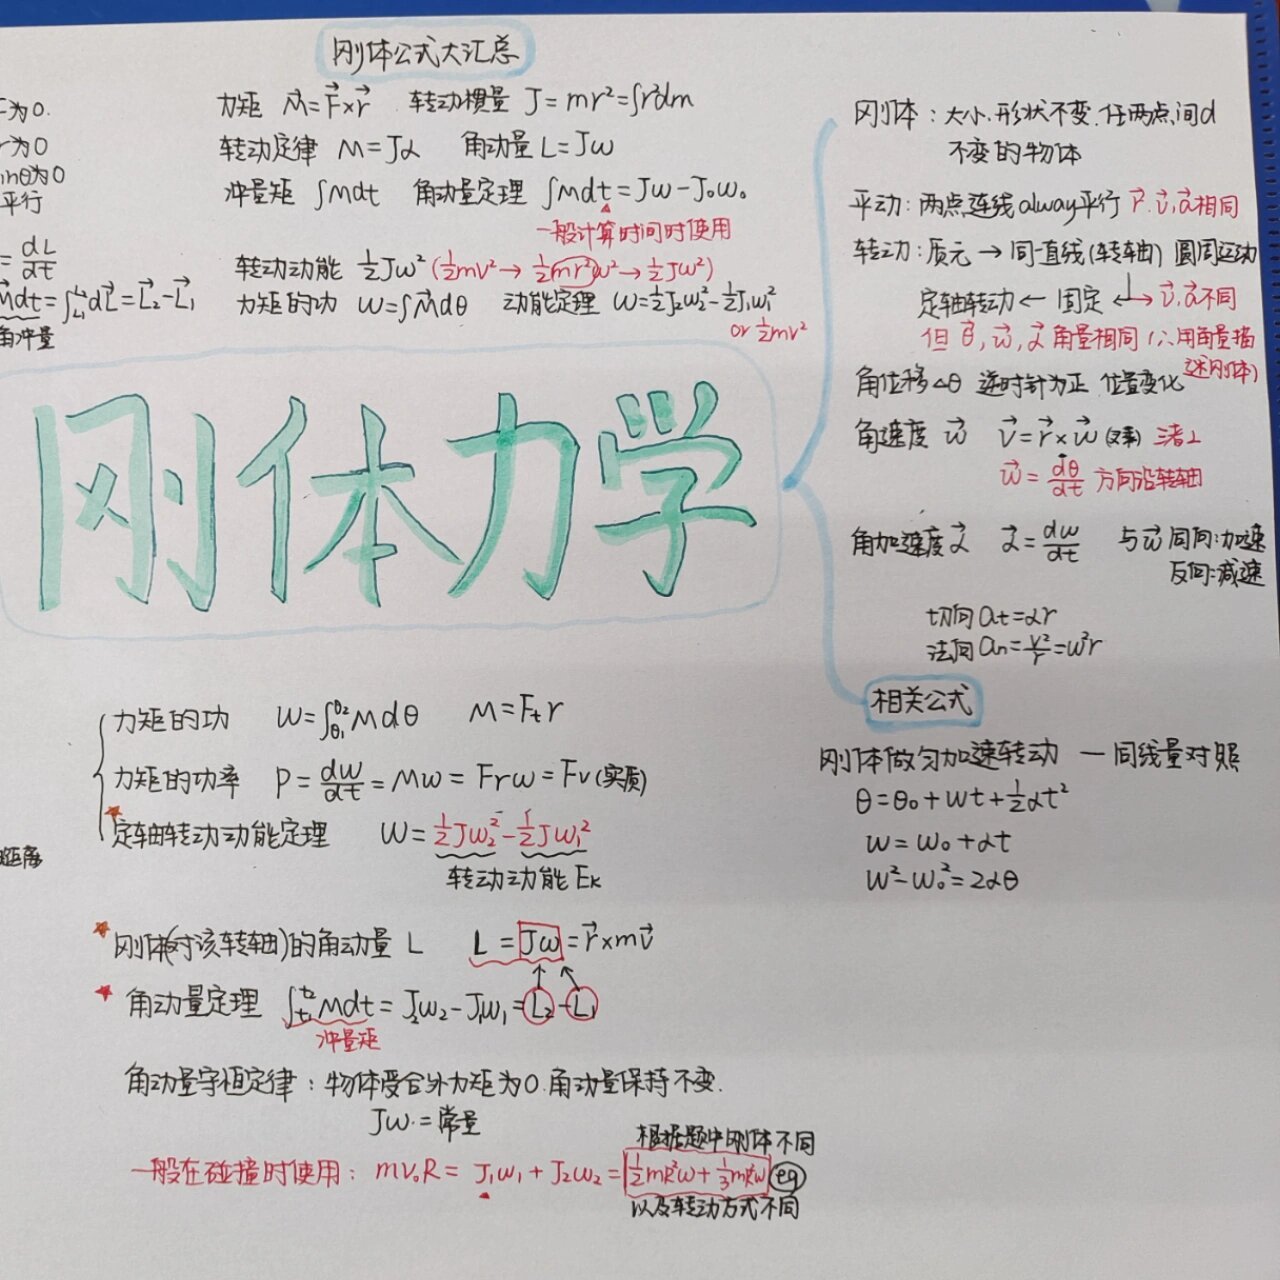 刚体公式大汇总
为0.
力矩 M⃗=F⃗×r⃗ 转动惯量 J=mr²=∫r²dm
为0
转动定律 M=Jα 角动量 L=Jω
inθ为0
平行
冲量矩 ∫Mdt 角动量定理 ∫Mdt=Jω-J₀ω₀
一般计算时间时使用
=dL/dt
转动动能 ½Jω² (½mv²→½mr²ω²→½Jω²)
M⃗dt=∫dL⃗=L⃗₂-L⃗₁
角冲量
力矩的功 W=∫M⃗dθ 动能定理 W=½J₂ω₂²-½J₁ω₁²
or ½mv²
刚体力学
刚体:大小、形状不变.任两点间d
不变的物体
平动:两点连线alway平行 r⃗.v⃗,a⃗相同
转动:质元→同一直线(转轴) 圆周运动
定轴转动←固定← →v⃗,a⃗不同
但θ⃗,ω⃗,α⃗角量相同(∴用角量描
述刚体)
角位移Δθ 逆时针为正 位置变化
角速度 ω⃗ v⃗=r⃗×ω⃗(叉乘) 三者⊥
ω⃗=dθ/dt 方向沿转轴
角加速度α⃗ α⃗=dω/dt 与ω⃗同向:加速
反向:减速
切向at=αr
法向an=v²/r=ω²r
相关公式
刚体做匀加速转动 一同线量对照
θ=θ₀+ωt+½αt²
ω=ω₀+αt
ω²-ω₀²=2αθ
力矩的功 W=∫θ₁θ₂Mdθ M=Ftr
力矩的功率 P=dw/dt=Mω=Frω=Fv(实质)
定轴转动动能定理 W=½Jω₂²-½Jω₁²
转动动能 Ek
刚体(对该转轴)的角动量 L L=Jω=r⃗×mv⃗
角动量定理 ∫t₁t₂Mdt=J₂ω₂-J₁ω₁=L₂-L₁
冲量矩
角动量守恒定律:物体受合外力矩为0.角动量保持不变.
Jω.=常量
根据题中刚体不同
一般在碰撞时使用: mv₀R=J₁ω₁+J₂ω₂=½mR²ω+⅓mR²ω eg
以及转动方式不同